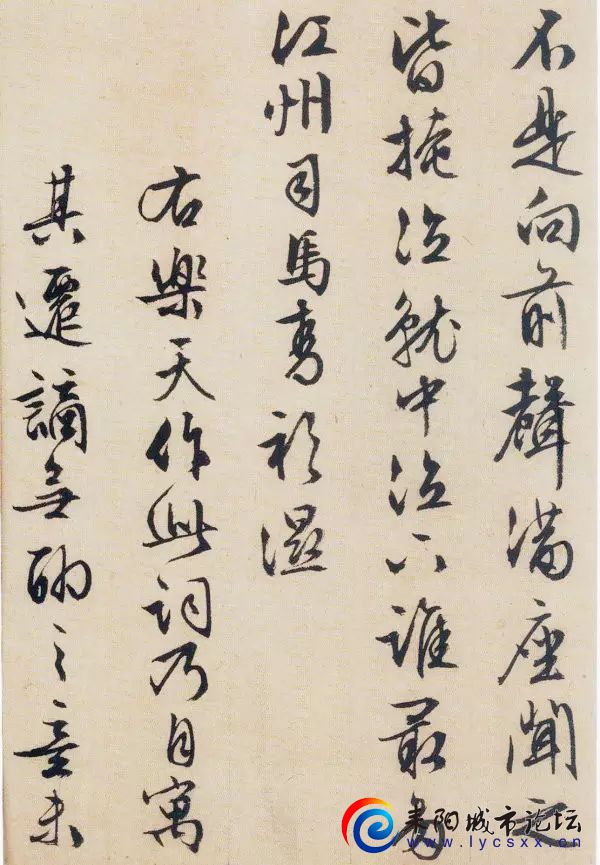 不是向前聲滿座聞之
皆掩泣就中泣下誰最多
江州司馬青衫濕
右樂天作此詞乃自寓
其遷謫無聊之意未
耒阳城市论坛
www.lycsxx.cn